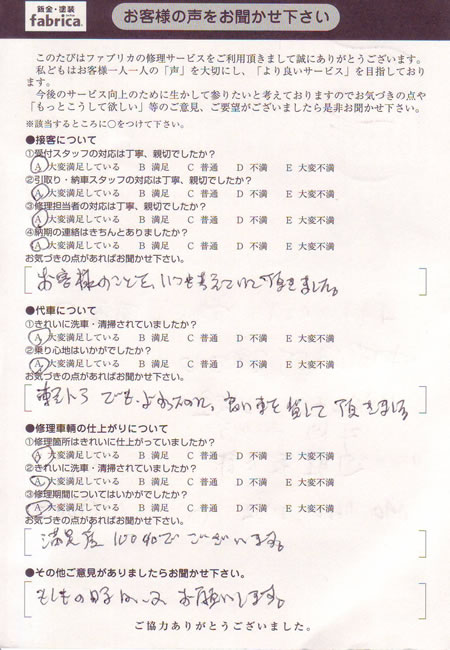 鈑金・塗装
fabrica.
お客様の声をお聞かせ下さい
このたびはファブリカの修理サービスをご利用頂きまして誠にありがとうございます。
私どもはお客様一人一人の「声」を大切にし、「より良いサービス」を目指しております。
今後のサービス向上のために生かして参りたいと考えておりますのでお気づきの点や
「もっとこうして欲しい」等のご意見、ご要望がございましたら是非お聞かせ下さい。
※該当するところに○をつけて下さい。
●接客について
①受付スタッフの対応は丁寧、親切でしたか?
A 大変満足している B 満足 C 普通 D 不満 E 大変不満
②引取り・納車スタッフの対応は丁寧、親切でしたか?
A 大変満足している B 満足 C 普通 D 不満 E 大変不満
③修理担当者の対応は丁寧、親切でしたか?
A 大変満足している B 満足 C 普通 D 不満 E 大変不満
④納期の連絡はきちんとありましたか?
A 大変満足している B 満足 C 普通 D 不満 E 大変不満
お気づきの点があればお聞かせ下さい。
お客様のことを、いつも考えていて頂きました。
●代車について
①きれいに洗車・清掃されていましたか?
A 大変満足している B 満足 C 普通 D 不満 E 大変不満
②乗り心地はいかがでしたか?
A 大変満足している B 満足 C 普通 D 不満 E 大変不満
お気づきの点があればお聞かせ下さい。
軽トラでも、よかったのに、良い車を貸して頂きました
●修理車輌の仕上がりについて
①修理箇所はきれいに仕上がっていましたか?
A 大変満足している B 満足 C 普通 D 不満 E 大変不満
②きれいに洗車・清掃されていましたか?
A 大変満足している B 満足 C 普通 D 不満 E 大変不満
③修理期間についてはいかがでしたか?
A 大変満足している B 満足 C 普通 D 不満 E 大変不満
お気づきの点があればお聞かせ下さい。
満足度100%でございます。
●その他ご意見がありましたらお聞かせ下さい。
もしもの時は、お願いします。
ご協力ありがとうございました。